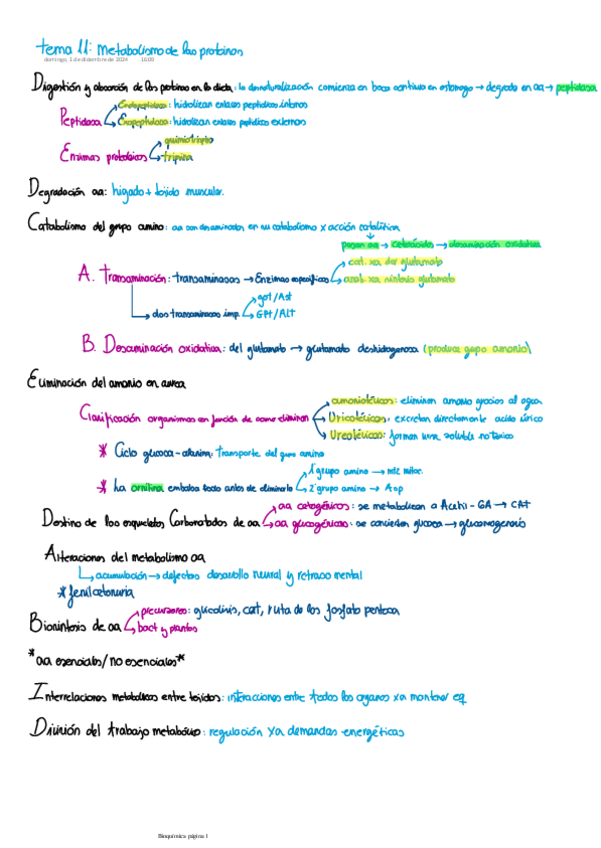 tema 11: Metabolismo de las proteínas
domingo, 1 de diciembre de 2024 16:09
Digestión y absorción de las proteínas en la dieta: la desnaturalización comienza en boca continua en estómago → degrada en aa → peptidasa
Endopeptidasa: hidrolizan enlaces peptídicos internos
Peptidasa
Exopeptidasa: hidrolizan enlaces peptídicos externos
quimiotripsi
Enzimas proteolíticos
tripsina
Degradación aa: hígado + tejido muscular.
Catabolismo del grupo amino: aa son desaminados en su catabolismo x acción catalítica
pasan aa → cetoácidos → desaminación oxidativa
cat. xa dar glutamato
A. Transaminación: transaminasas → Enzimas específicas
anab xa síntesis glutamato
got/Ast
dos transaminasas imp.
GPt/ALT
B. Desaminación oxidativa: del glutamato → glutamato deshidrogenasa (produce grupo amonio)
Eliminación del amonio en urea
amonioteilicos: eliminan amonio gracias al agua
Clasificación organismos en función de como eliminan
Uricotélicos: excretan directamente acido úrico
Ureotélicos: forman urea soluble no tóxico
* Ciclo glucosa-alanina: transporte del grupo amino
1 grupo amino → mt mitoc.
* La ornitina embolsa todo antes de eliminarlo
2 grupo amino → Asp
aa cetogénicos: se metabolizan a Acetil-CoA → CAT
Destino de los esqueletos Carbonatados de aa
aa glucogénicos: se convierten glucosa → gluconeogenesis
Alteraciones del metabolismo aa
acumulación → defectos desarrollo neural y retraso mental
* fenilcetonuria
precursores: glucolisis, cat, ruta de las fosfato pentosa
Biosíntesis de aa
bact y plantas
*aa esenciales/no esenciales*
Interrelaciones metabólicas entre tejidos: interacciones entre todos los organos xa mantener eq
División del trabajo metabólico: regulación xa demandas energéticas
Bioquímica página 1